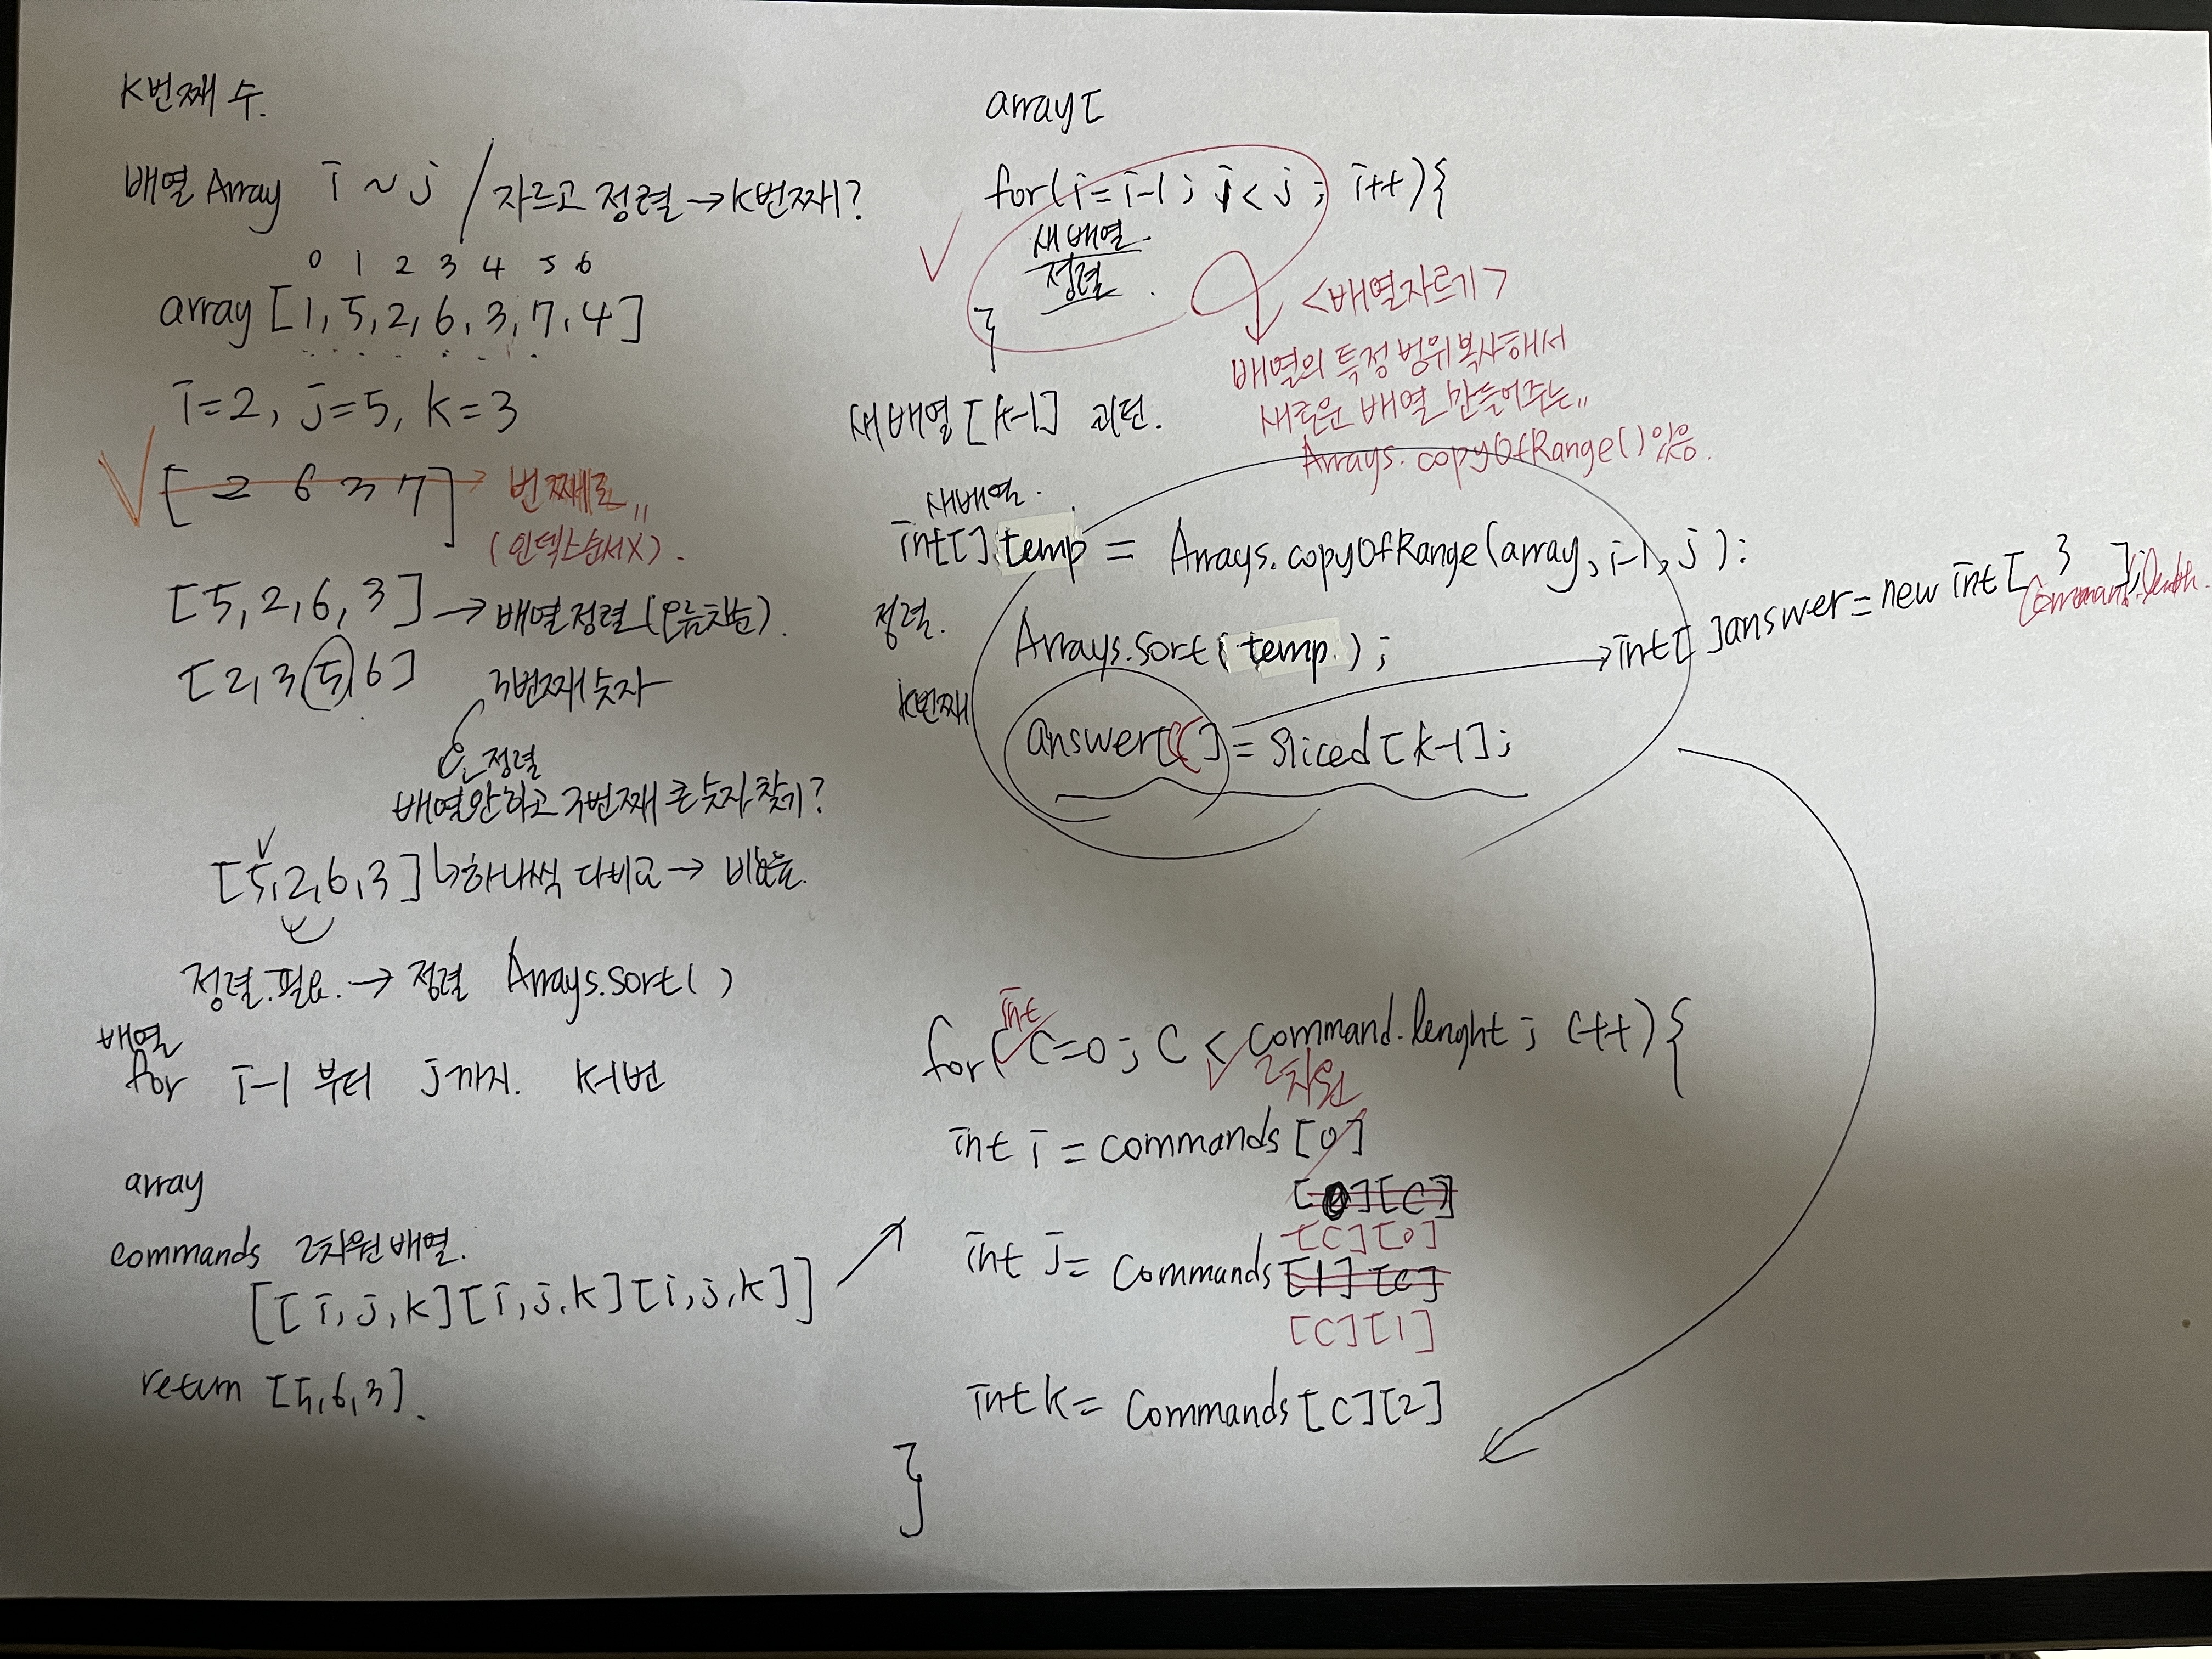 K번째 수.
배열 Array i ~ j / 자르고 정렬 → K번째?
0 1 2 3 4 5 6
array [1, 5, 2, 6, 3, 7, 4]
i=2, j=5, k=3
[ 2 6 3 7] → 번째로"
(인덱스해X).
[5, 2, 6, 3] → 배열 정렬 (오름차순).
[2, 3, 5, 6] 3번째 숫자
정렬
배열안하고 3번째 큰 숫자 찾기?
[5, 2, 6, 3] 하나씩 대비교 →
정렬.필요. → 정렬 Arrays.sort( )
배열
for i-1 부터 j까지. k-1번
array
commands 2차원배열.
[[i,j,k][i,j,k][i,j,k]]
return [5,6,3].
array[
for(i=i-1; j<j; i++){
새배열
정렬.
}
<배열자르기>
배열의 특정범위복사해서
새로운 배열 만들어주는"
Arrays.copyOfRange() 있음.
새배열[k-1] 리턴.
새배열.
int[] temp = Arrays.copyOfRange(array, i-1, j);
정렬.
Arrays.sort( temp. );
k번째
answer[ ] = Sliced[k-1];
int[ ]answer = new int[ }];
Command.length.
for(int C=0; C < Command.lenght; C++){
2차원
int i = Commands[0]
[0][C]
[C][0]
int j = Commands[1][C]
[C][1]
int k = Commands[C][2]
}